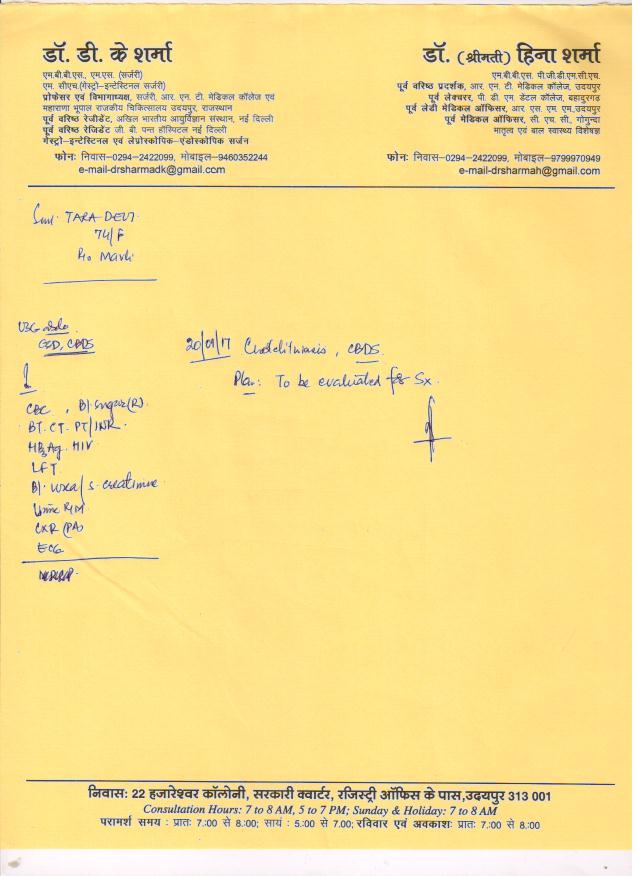 डॉ. डी. के शर्मा
एम.बी.बी.एस., एम.एस. (सर्जरी)
एम. सीएच.(गेस्ट्रो–इन्टेस्टिनल सर्जरी)
प्रोफेसर एवं विभागाध्यक्ष, सर्जरी, आर. एन. टी. मेडिकल कॉलेज एवं
महाराणा भूपाल राजकीय चिकित्सालय उदयपुर, राजस्थान
पूर्व वरिष्ठ रेजीडेंट, अखिल भारतीय आयुर्विज्ञान संस्थान, नई दिल्ली
पूर्व वरिष्ठ रेजिडेंट जी. बी. पन्त हॉस्पिटल नई दिल्ली
गेस्ट्रो–इन्टेस्टिनल एवं लेप्रोस्कोपिक–एंडोस्कोपिक सर्जन
फोनः निवास–0294–2422099, मोबाइल–9460352244
e-mail-drsharmadk@gmail.com
डॉ. (श्रीमती) हिना शर्मा
एम.बी.बी.एस. पी.जी.डी.एम.सी.एच.
पूर्व वरिष्ठ प्रदर्शक, आर. एन. टी. मेडिकल कॉलेज, उदयपुर
पूर्व लेक्चरर, पी. डी. एम. डेंटल कॉलेज, बहादुरगढ़
पूर्व लेडी मेडिकल ऑफिसर, आर. एस. एम. एम.,उदयपुर
पूर्व मेडिकल ऑफिसर, सी. एच. सी., गोगुन्दा
मातृत्व एवं बाल स्वास्थ्य विशेषज्ञ
फोनः निवास–0294–2422099, मोबाइल–9799970949
e-mail-drsharmah@gmail.com
Smt. TARA DEVI
74/F
R/o Mavli
USG abdo.
GSD, CBDS
20/09/17 , CBDS.
Plan: To be evaluated for Sx.
CBC, Bl. sugar (R).
BT. CT. PT/INR.
HBsAg. HIV
LFT
Bl. urea/ S. creatinine
Urine R/M
CXR (PA)
ECG
निवासः 22 हजारेश्वर कॉलोनी, सरकारी क्वार्टर, रजिस्ट्री ऑफिस के पास,उदयपुर 313 001
Consultation Hours: 7 to 8 AM, 5 to 7 PM; Sunday & Holiday: 7 to 8 AM
परामर्श समय : प्रातः 7:00 से 8:00; सायं : 5:00 से 7.00; रविवार एवं अवकाशः प्रातः 7.:00 से 8:00